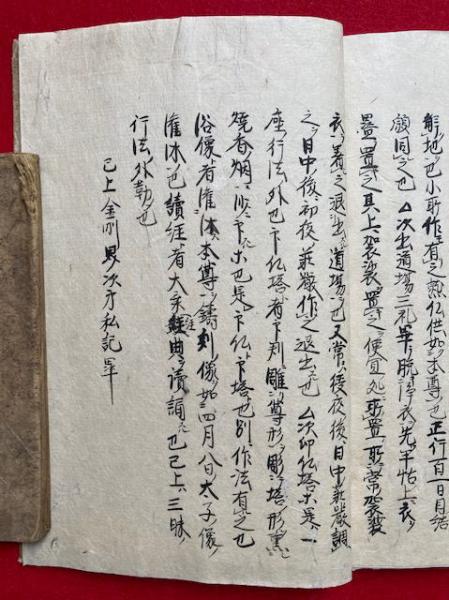 躰地也小所作有之熱仏供如本尊也正行一百一日月結
願同之也 次出道場三礼畢脱浄衣先平帖上衣
畳置之其上袈裟置之便宜処 置 常袈裟
衣着之退出道場也又常後夜後日中荘厳調
之日中後初夜荘厳作之退出也 次印仏塔 是一
座行法外也印仏塔者下刋雕尊形彫塔形薫
焼香烟 印 也是印仏印塔也別作法有之也
浴像者灌沐本尊鋳刻像如四月八日太子像
灌沐也読経者大乗経典読誦也已上三昧
行法外勤也
已上金剛界次才私記畢